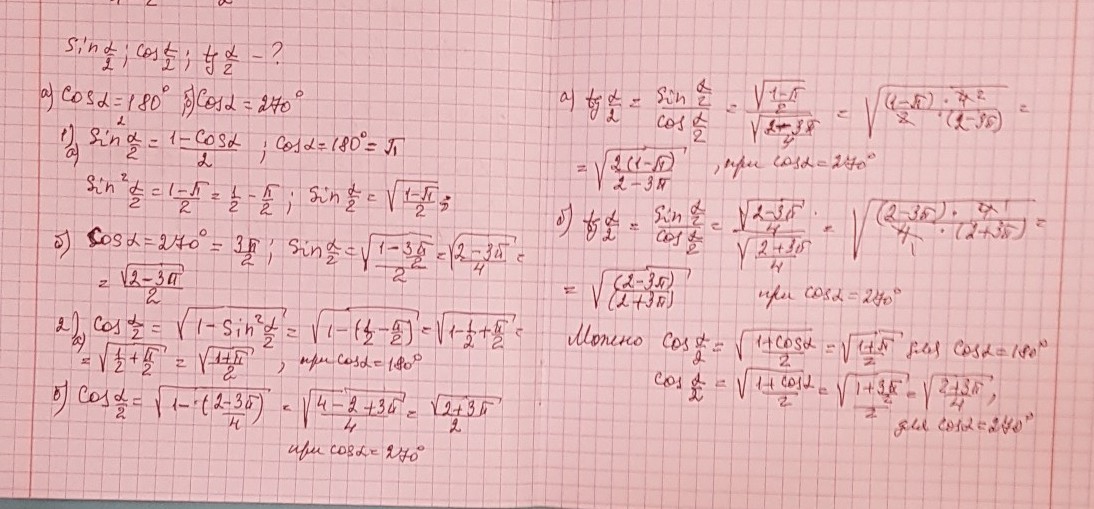 sin α/2 ; cos α/2 ; tg α/2 - ?
а) cos α = 180° б) cos α = 270°
1) а) sin² α/2 = (1 - cos α)/2 ; cos α = 180° = π
sin² α/2 = (1-π)/2 = 1/2 - π/2 ; sin α/2 = √((1-π)/2) ;
б) cos α = 270° = 3π/2 ; sin α/2 = √((1 - 3π/2)/2) = √((2-3π)/4) =
= √(2-3π)/2
2) а) cos α/2 = √(1 - sin² α/2) = √(1 - (1/2 - π/2)) = √(1 - 1/2 + π/2) =
= √(1/2 + π/2) = √((1+π)/2) , при cos α = 180°
б) cos α/2 = √(1 - (2-3π)/4) = √((4-2+3π)/4) = √(2+3π)/2
при cos α = 270°
а) tg α/2 = (sin α/2)/(cos α/2) = √((1-π)/2)/√((2-3π)/4) = √((1-π)·4²/(2·(2-3π))) =
= √(2(1-π)/(2-3π)) , при cos α = 270°
б) tg α/2 = (sin α/2)/(cos α/2) = √((2-3π)/4)/√((2+3π)/4) = √((2-3π)·4¹/(4₁·(2+3π))) =
= √((2-3π)/(2+3π)) при cos α = 270°
Можно cos α/2 = √((1+cos α)/2) = √((1+π)/2) для cos α = 180°
cos α/2 = √((1+cos α)/2) = √((1+3π/2)/2) = √((2+3π)/4) ,
для cos α = 270°